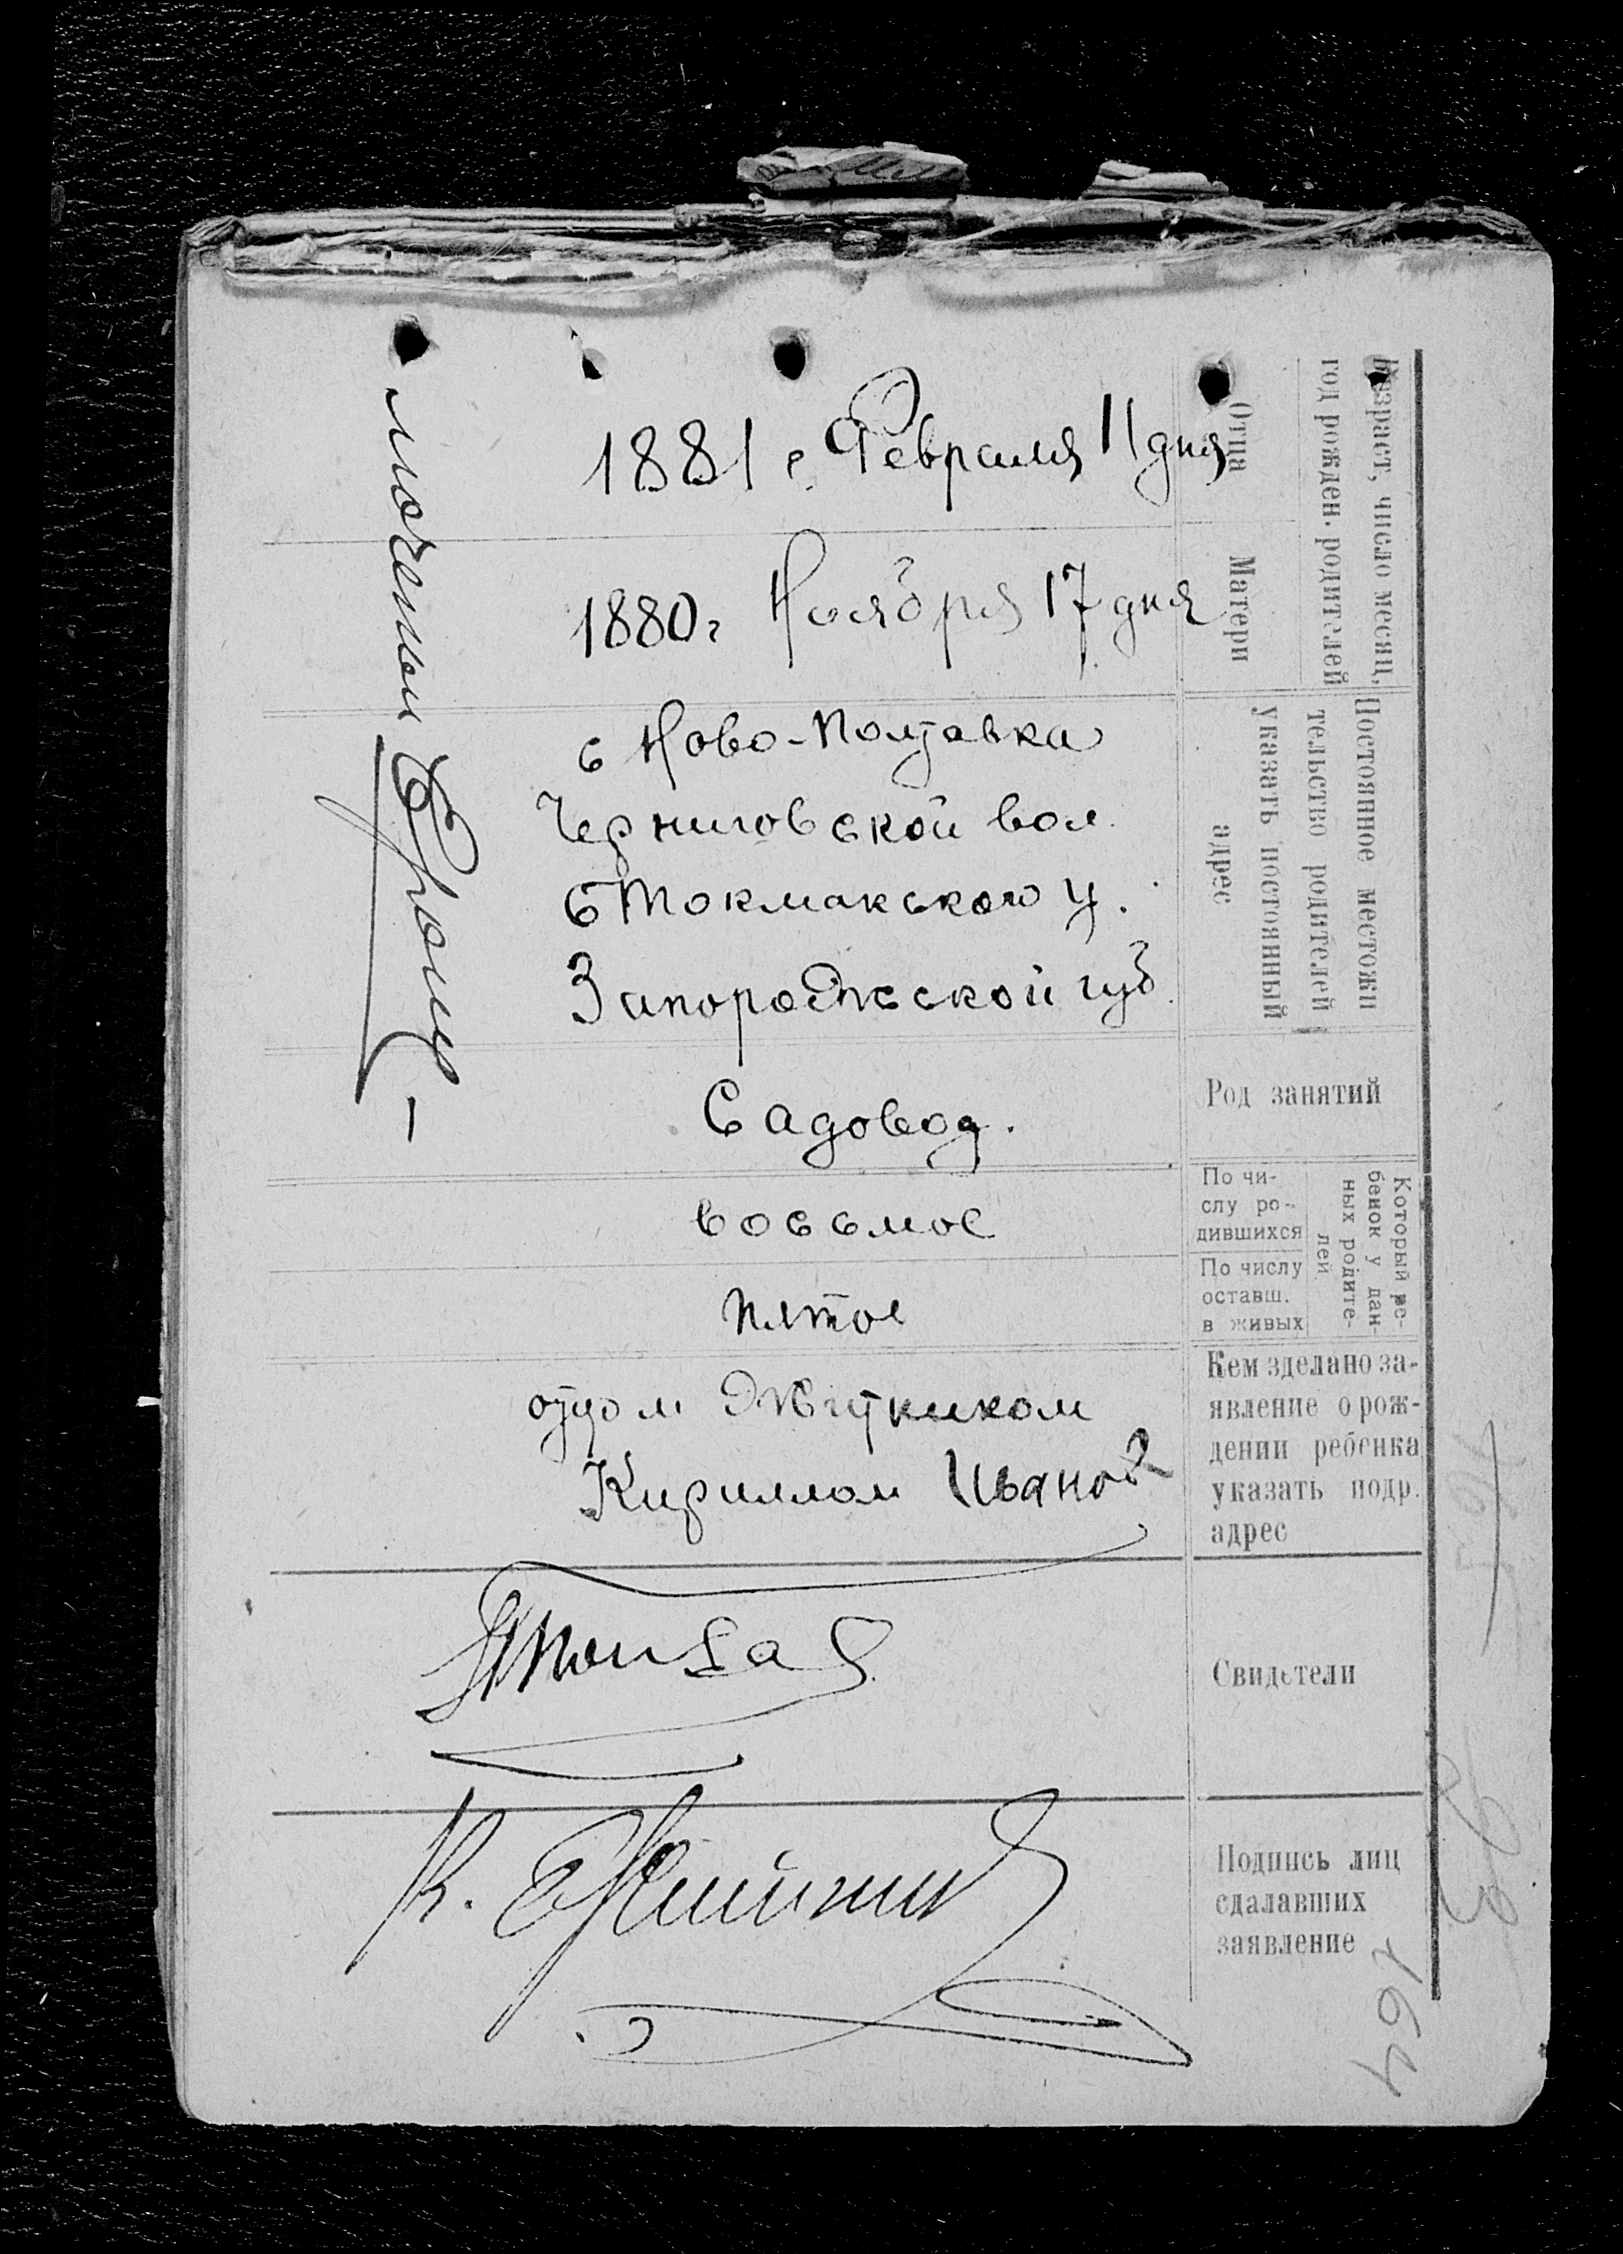 Возраст, число месяц,
год рожден. родителей
Отца
1881 г. Февраля 11 дня
Матери
1880 г Ноября 17 дня
Постоянное местожи
тельство родителей
указать постоянный
адрес
с Ново-Полтавка
Черниговской вол.
Б Токмакского у.
Запорожской губ.
Род занятий
Садовод.
Который ре-
бенок у дан-
ных родите-
лей
По чи-
слу ро-
дившихся
восьмое
По числу
оставш.
в живых
пятое
Кем зделано за-
явление о рож-
дении ребенка
указать подр.
адрес
отцом
Кириллом Иванов
Свидетели
Подпись лиц
сдалавших
заявление
К.
164